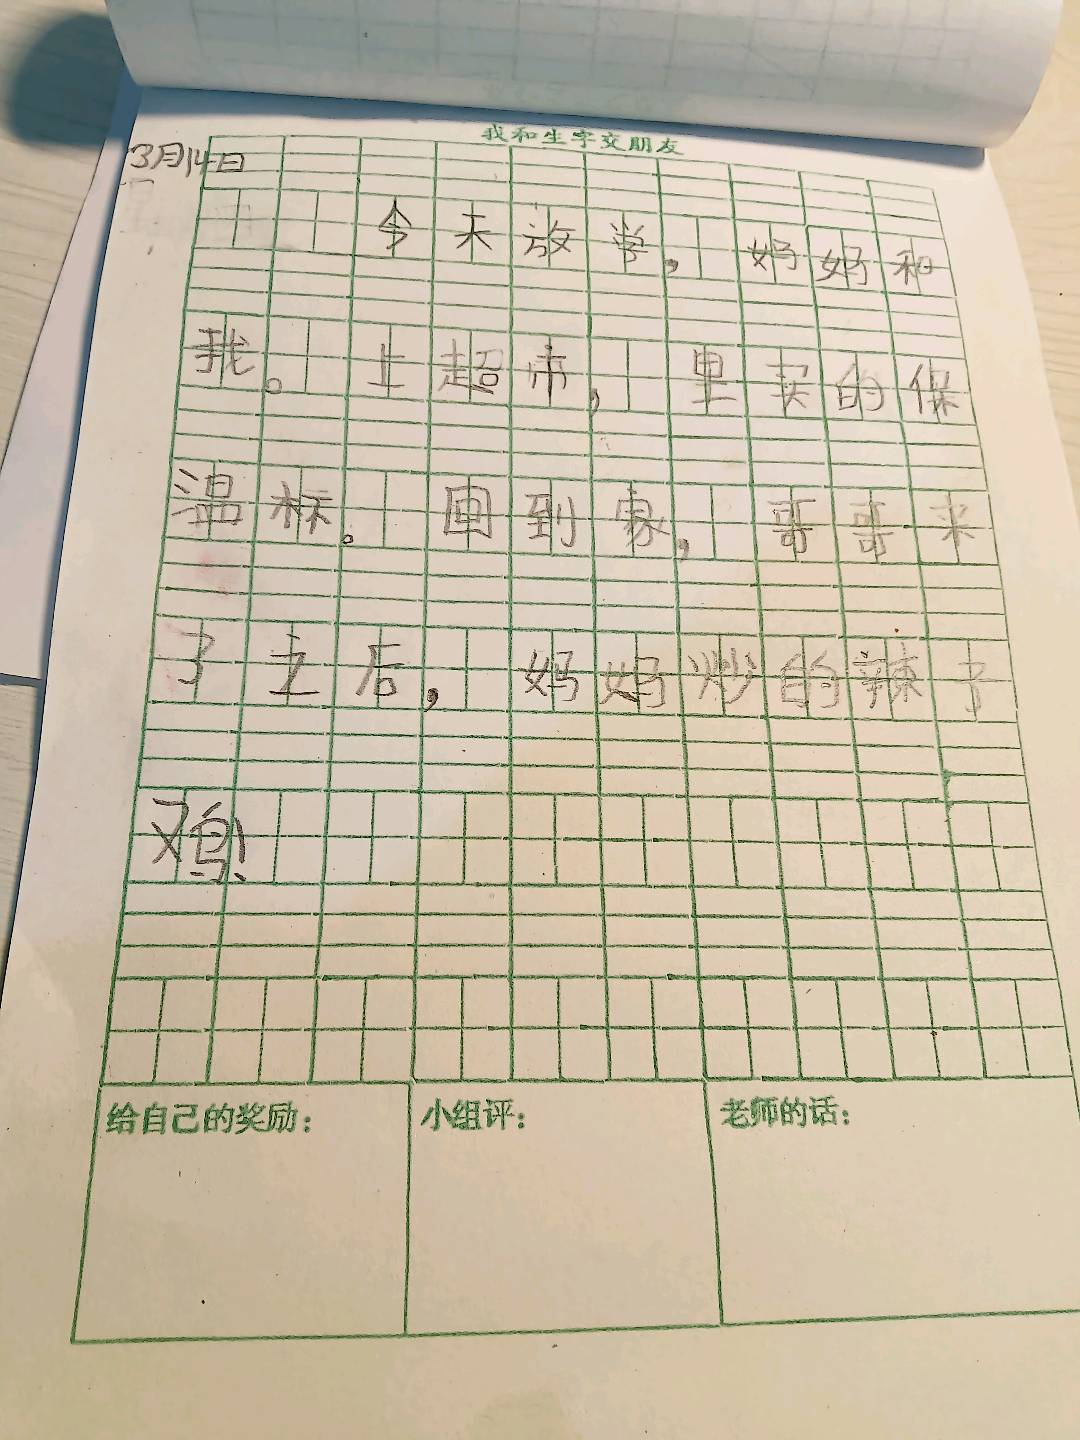 我和生字交朋友
3月14日
今天放学，妈妈和
我。上超市，里买的保
温标。回到家，哥哥来
了之后，妈妈炒的辣子
鸡!
给自己的奖励： 小组评： 老师的话：